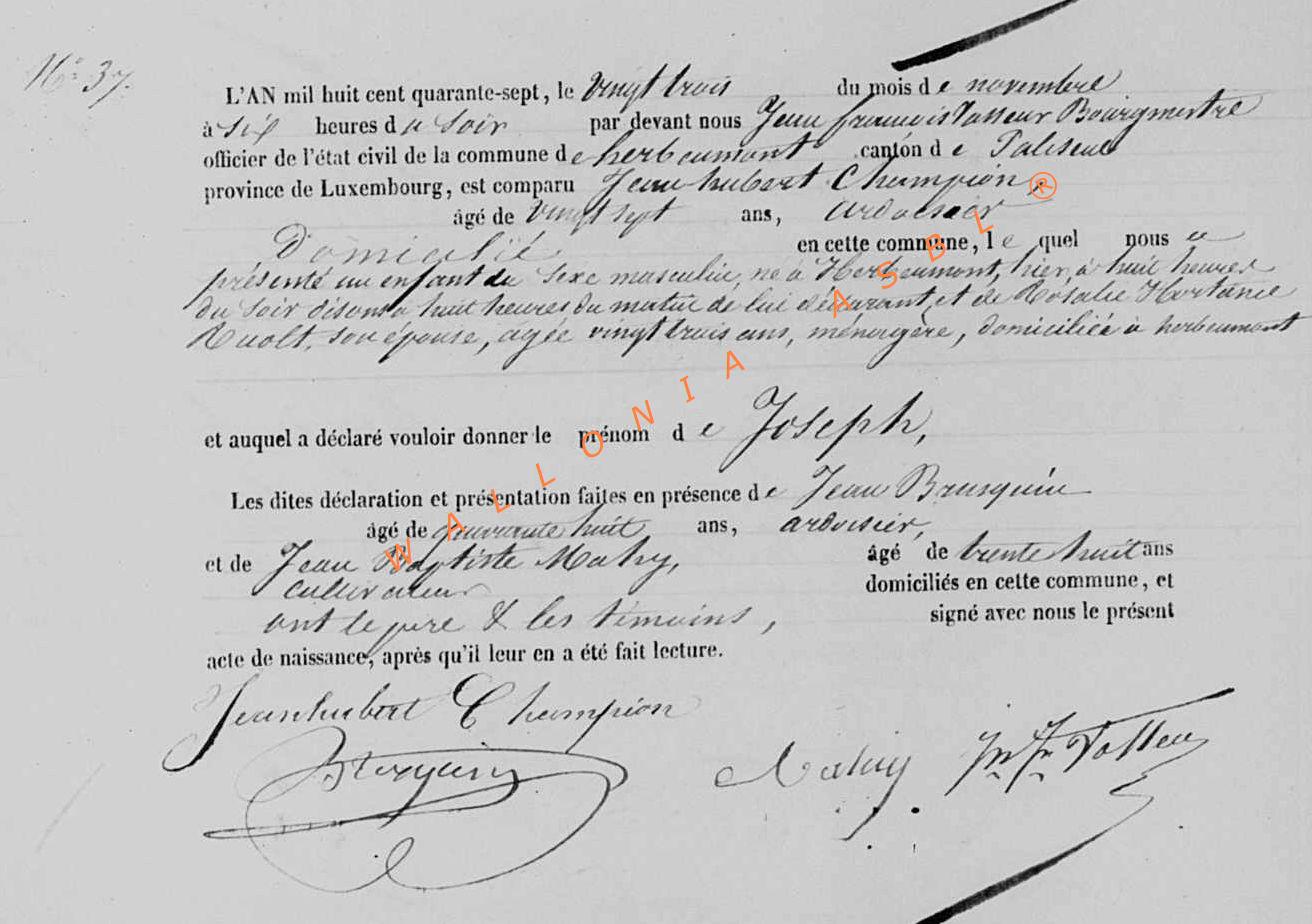 N° 37.
L'AN mil huit cent quarante-sept, le vingt trois du mois de novembre
à six heures du soir par devant nous Jean françois Tasseur Bourgmestre
officier de l'état civil de la commune de herbeumont canton de Paliseul
province de Luxembourg, est comparu Jean hubert Champion,
âgé de vingt sept ans, ardoisier
Domicilié en cette commune, lequel nous a
présenté un enfant du sexe masculin, né à Herbeumont, hier, à huit heures
du soir disons à huit heures du matin de lui déclarant, et de Rosalie Hortance
son épouse, agée vingt trois ans, ménagère, domiciliée à herbeumont
et auquel a déclaré vouloir donner le prénom de Joseph,
Les dites déclaration et présentation faites en présence de Jean Brusquin
âgé de quarante huit ans, ardoisier,
et de Jean Baptiste Mahy, âgé de trente huit ans
cultivateur domiciliés en cette commune, et
ont le père & les témoins, signé avec nous le présent
acte de naissance, après qu'il leur en a été fait lecture.
Jean hubert Champion
Mahy
WALLONIA ASBL ®